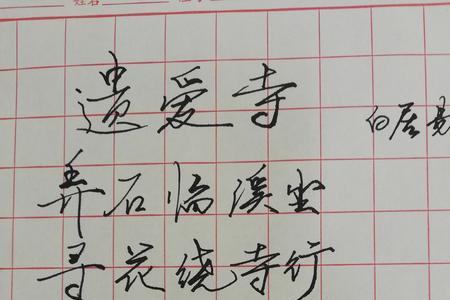 姓名
遗爱寺 白居
弄石临溪坐
寻花绕寺行